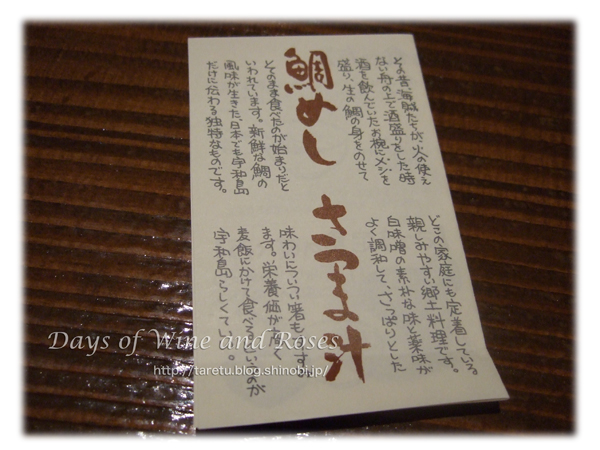 鯛めし
その昔、海賊たちが、火の使え
ない舟の上で酒盛りをした時
酒を飲んでいたお椀にメシを
盛り、生の鯛の身をのせて
そのまま食べたのが始まりだと
いわれています。新鮮な鯛の
風味が生きた、日本でも宇和島
だけに伝わる独特なものです。
さつま汁
どこの家庭にも定着している。
親しみやすい郷土料理です。
白味噌の素朴な味と薬味が
よく調和して、さっぱりとした
味わいについつい箸も
ます。栄養価が高く
麦飯にかけて食べる
宇和島らしくて
Days of Wine and Roses
http://taretu.blog.shinobi.jp/